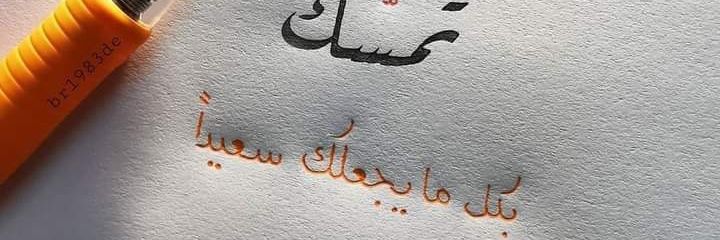 تمسّك
بكل ما يجعلك سعيداً
br1983de